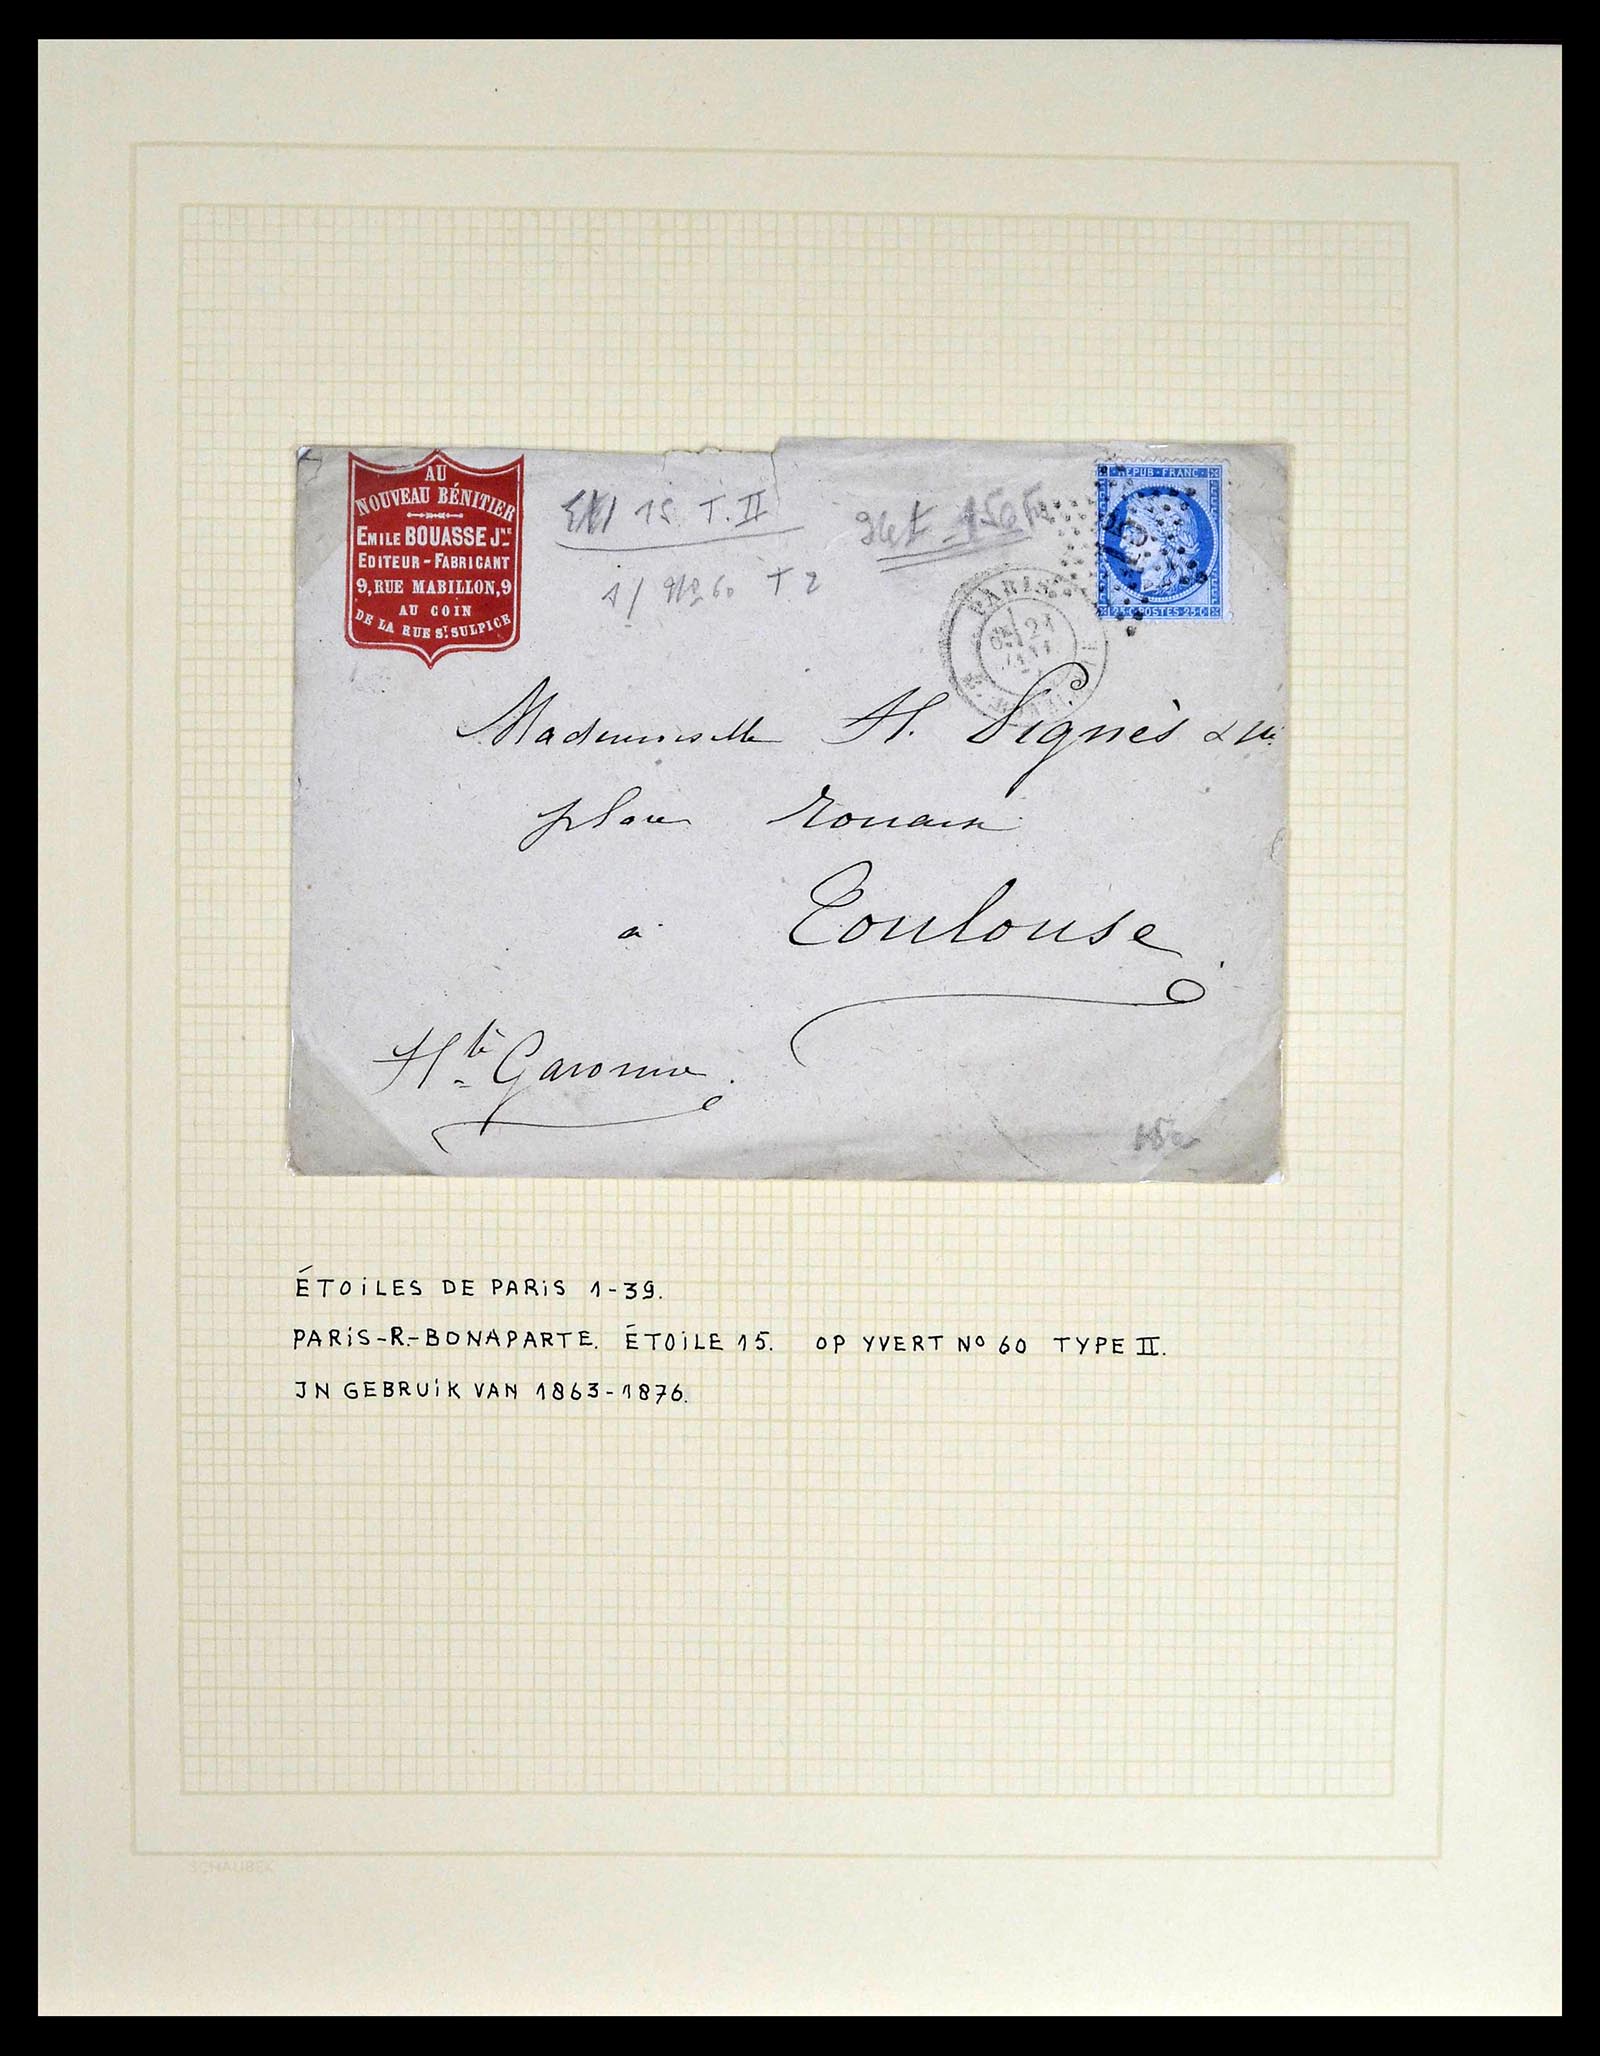 AU
NOUVEAU BÉNITIER
EMILE BOUASSE JNE
EDITEUR - FABRICANT
9, RUE MABILLON, 9
AU COIN
DE LA RUE ST. SULPICE
15 T. II
60 T 2
REPUB · FRANC ·
25 · C · POSTES · 25 · C
15
PARIS
Mademoiselle H. Vignès
place Rouaix
à Toulouse
Hte Garonne.
ÉTOiLES DE PARiS 1-39.
PARiS-R.-BONAPARTE. ÉTOiLE 15. OP YVERT No 60 TYPE II.
IN GEBRUiK VAN 1863-1876.
SCHAUBEK